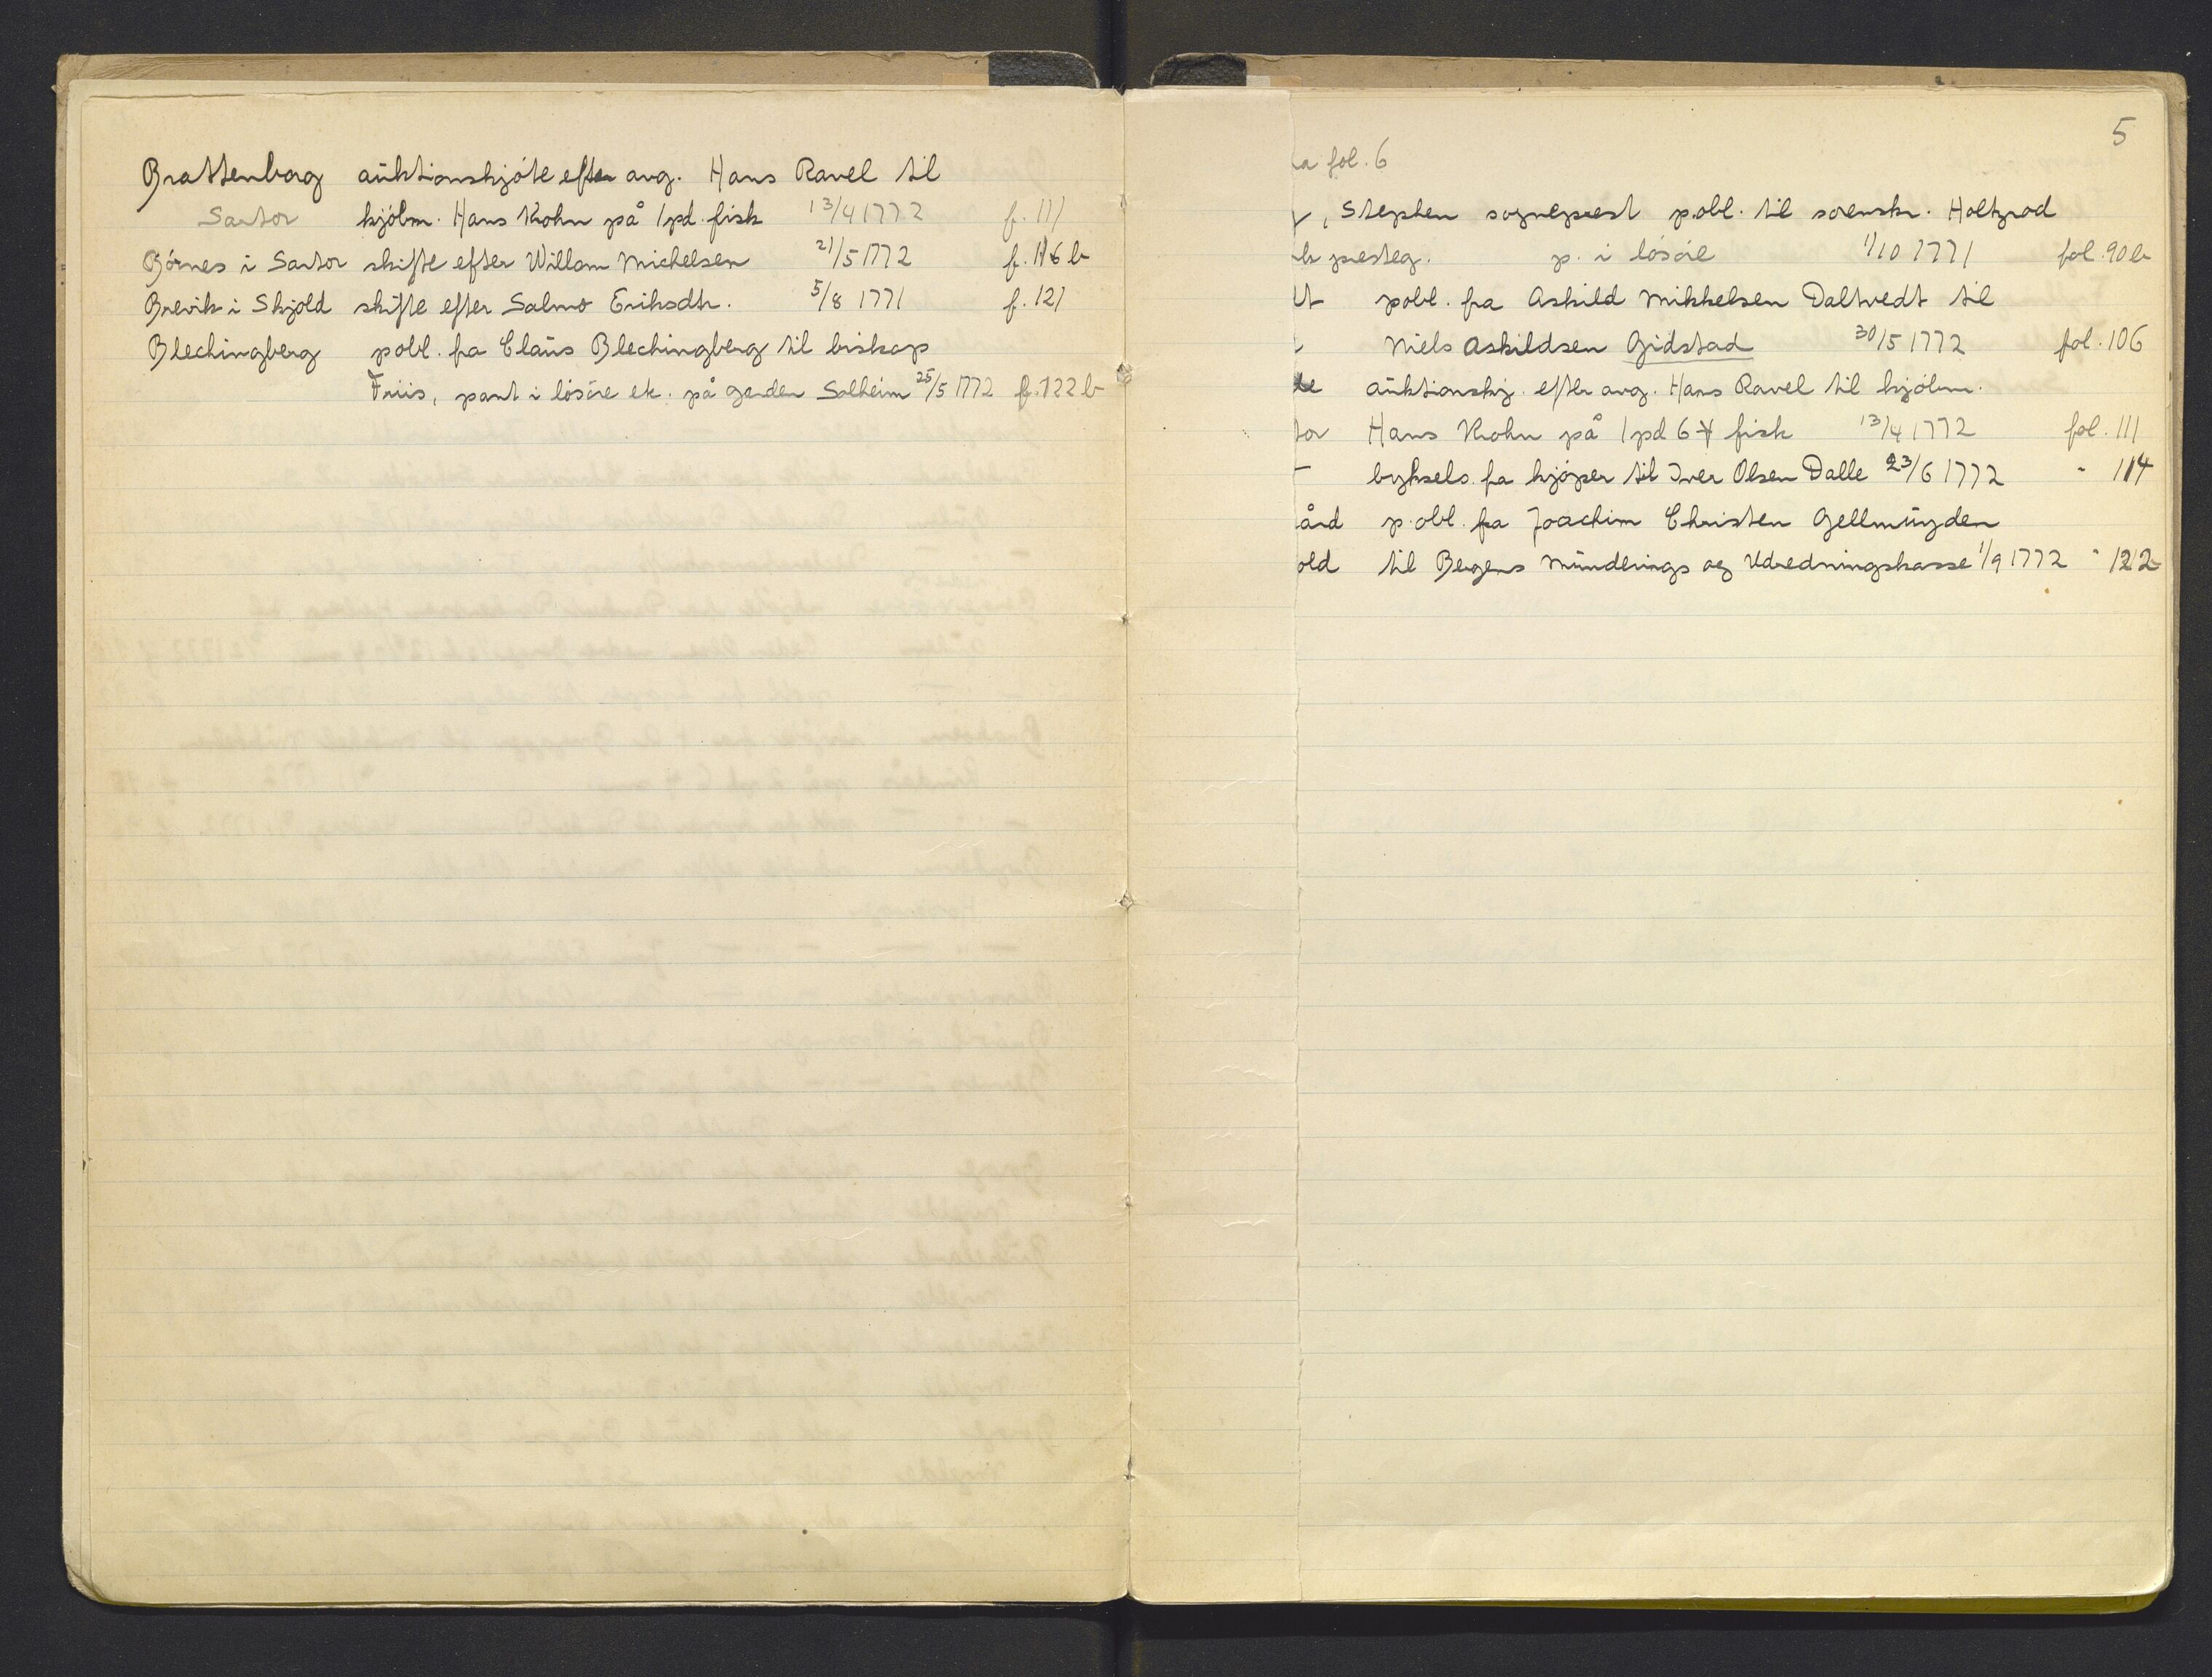 Brattenborg auktionskjöte efter avg. Hans Ravel til
Sartor kjöbm. Hans Krohn på 1pd. fisk 13/4 1772 f. 111
Börnes i Sartor skifte efter Willom Michelsen 21/5 1772 f. 116 b
Brevik i Skjold skifte efter Salmo Eriksdtr. 5/8 1771 f. 121
Blechingberg pobl. fra Claus Blechingberg til biskop
Friis, pant i lösöre etc. på garden Solheim 25/5 1772 f. 122 b
5
a fol. 6
, Stephen sogneprest p.obl. til sorenskr. Holtzrod
presteg. p. i lösöre 1/10 1771 fol. 90 b
dt pobl. fra Askild Mikkelsen Daltvedt til
Niels Askildsen Gidstad 30/5 1772 fol. 106
le auktionskj. efter avg. Hans Ravel til kjöbm.
tor Hans Krohn på 1pd 6 ℔ fisk 13/4 1772 fol. 111
- byksels. fra kjöper til Iver Olsen Dalle 23/6 1772 " 114
ård p.obl. fra Joachim Christen Gellmuyden
old til Bergens Munderings og Udredningskasse 1/9 1772 " 122